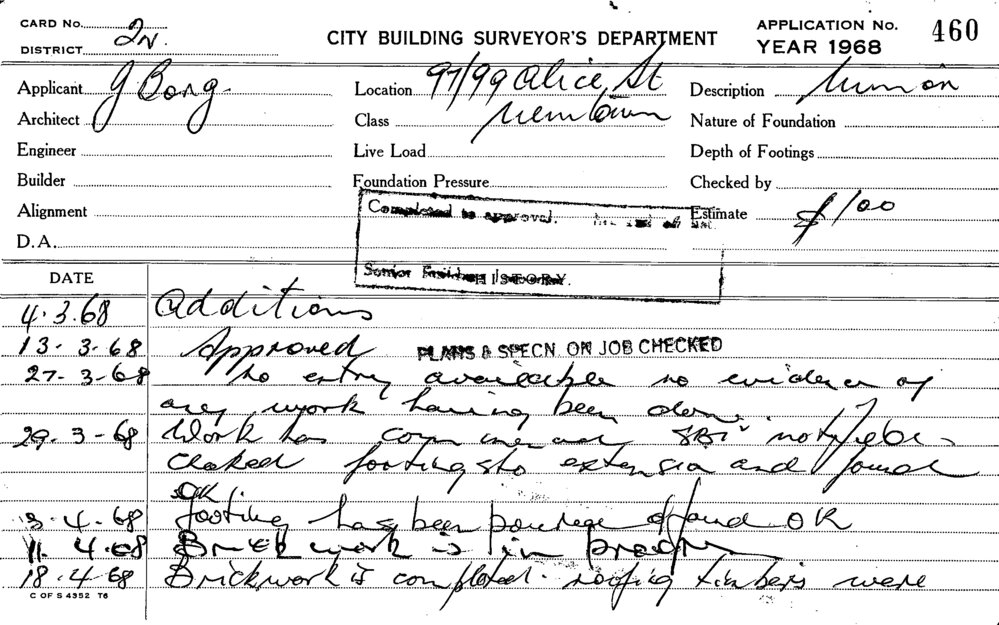 CARD No. 2N. CITY BUILDING SURVEYOR'S DEPARTMENT APPLICATION No. 460
DISTRICT YEAR 1968
Applicant J Bong. Location 97/99 Alice St Description
Architect Class Newtown Nature of Foundation
Engineer Live Load Depth of Footings
Builder Foundation Pressure Checked by
Alignment Completed to approval. Estimate $100
D.A.
Senior HISTORY.
DATE
4.3.68 Additions
13-3-68 Approved PLANS & SPECN. ON JOB CHECKED
27-3-68 No entry available no evidence of
any work having been done.
29-3-68 Work has
footings to and found
OK.
3.4.68 footing has been found OK
11.4.68 Brickwork is in
18.4.68 Brickwork is completed. roofing timbers were
C OF S 4352 T6